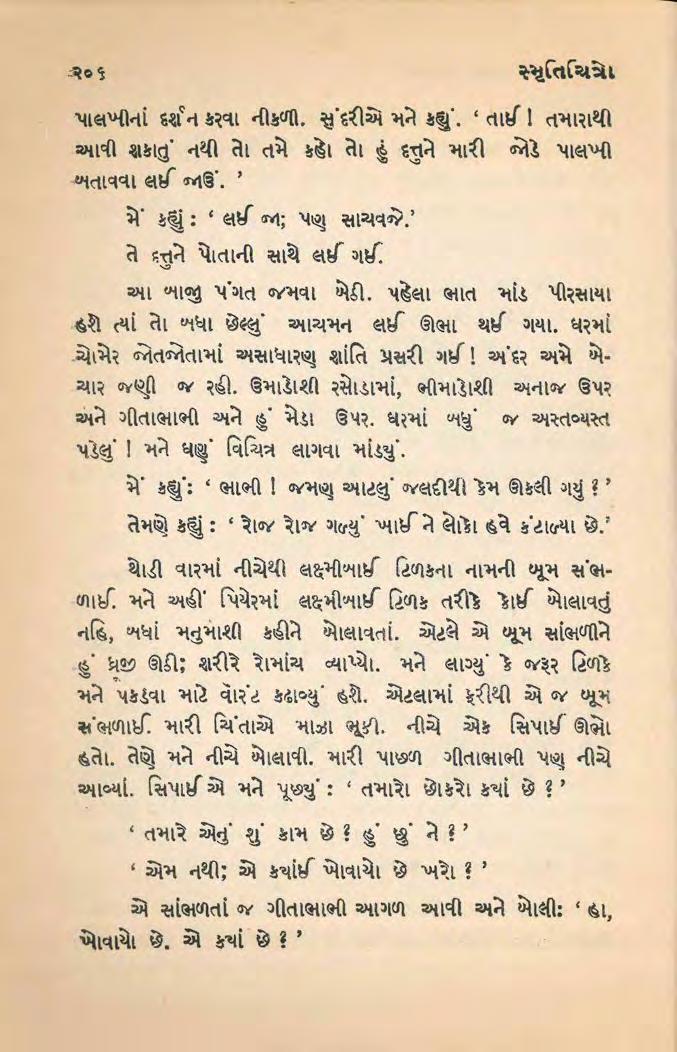 ૨૦૬ સ્મૃતિચિત્રો
પાલખીનાં દર્શન કરવા નીકળી. સુંદરીએ મને કહ્યું. ‘ તાઈ ! તમારાથી
આવી શકાતું નથી તો તમે કહો તો હું દત્તુને મારી જોડે પાલખી
બતાવવા લઈ જાઊં. ’
મેં કહ્યું : ‘ લઈ જા; પણ સાચવજે.’
તે દત્તુને પોતાની સાથે લઈ ગઈ.
આ બાજુ પંગત જમવા બેઠી. પહેલા ભાત માંડ પીરસાયા
હશે ત્યાં તો બધા છેલ્લું આચમન લઈ ઊભા થઈ ગયા. ઘરમાં
ચોમેર જોતજોતામાં અસાધારણ શાંતિ પ્રસરી ગઈ ! અંદર અમે બે-
ચાર જણી જ રહી. ઉમાડોશી રસોડામાં, ભીમાડોશી અનાજ ઉપર
અને ગીતાભાભી અને હું મેડા ઉપર. ઘરમાં બધું જ અસ્તવ્યસ્ત
પડેલું ! મને ઘણું વિચિત્ર લાગવા માંડયું.
મેં કહ્યું: ‘ ભાભી ! જમણ આટલું જલદીથી કેમ ઊકલી ગયું ? ’
તેમણે કહ્યું : ‘ રોજ રોજ ગળ્યું ખાઈ ને લોકો હવે કંટાળ્યા છે.’
થોડી વારમાં નીચેથી લક્ષ્મીબાઈ ટિળકના નામની બૂમ સંભ-
ળાઈ. મને અહીં પિયેરમાં લક્ષ્મીબાઈ ટિળક તરીકે કોઈ બોલાવતું
નહિ, બધાં મનુમાશી કહીને બોલાવતાં. એટલે એ બૂમ સાંભળીને
હું ધ્રૂજી ઊઠી; શરીરે રોમાંચ વ્યાપ્યો. મને લાગ્યું કે જરૂર ટિળકે
મને પકડવા માટે વૉરંટ કઢાવ્યું હશે. એટલામાં ફરીથી એ જ બૂમ
સંભળાઈ. મારી ચિંતાએ માઝા મૂકી. નીચે એક સિપાઈ ઊભો
હતો. તેણે મને નીચે બોલાવી. મારી પાછળ ગીતાભાભી પણ નીચે
આવ્યાં. સિપાઈ એ મને પૂછયું : ‘ તમારો છોકરો કયાં છે ? ’
‘ તમારે એનું શું કામ છે ? હું છું ને ? ’
‘ એમ નથી; એ કયાંઈ ખોવાયો છે ખરો ? ’
એ સાંભળતાં જ ગીતાભાભી આગળ આવી અને બોલી: ‘ હા,
ખોવાયો છે. એ કયાં છે ? ’